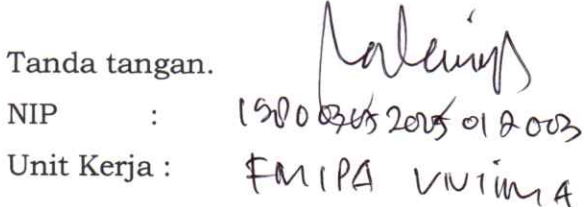 Tanda tangan.
NIP : 198003052005012003
Unit Kerja : FMIPA UNIMA